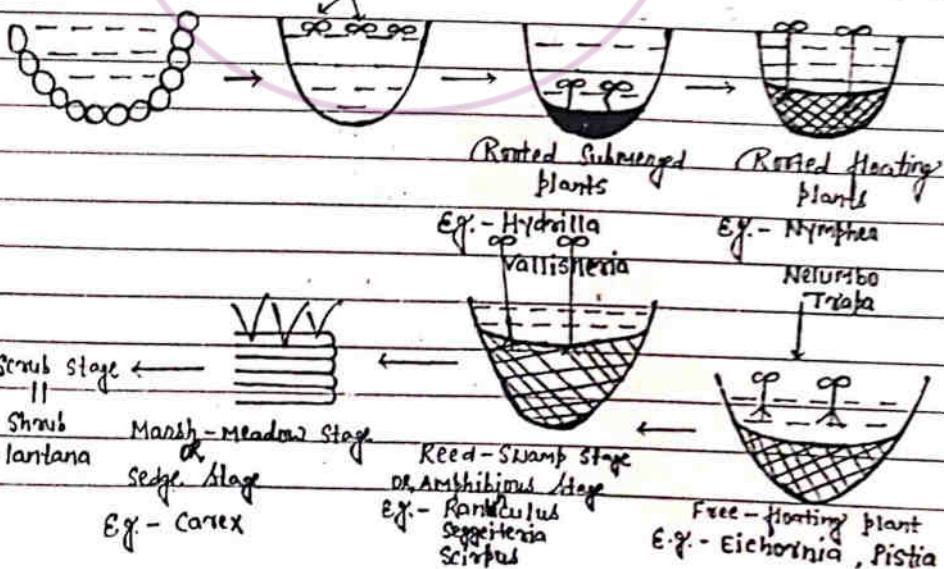 Rooted Submerged
plants
E.g.- Hydrilla
Vallisneria
Rooted floating
plants
E.g.- Nymphea
Nelumbo
Trapa
Free-floating plant
E.g.- Eichornia, Pistia
Reed-Swamp Stage
OR, Amphibious Stage
E.g.- Ranuculus
Seggeiteria
Scirpus
Marsh-Meadow Stage
OR
Sedge Stage
E.g.- Carex
Scrub Stage
||
Shrub
lantana